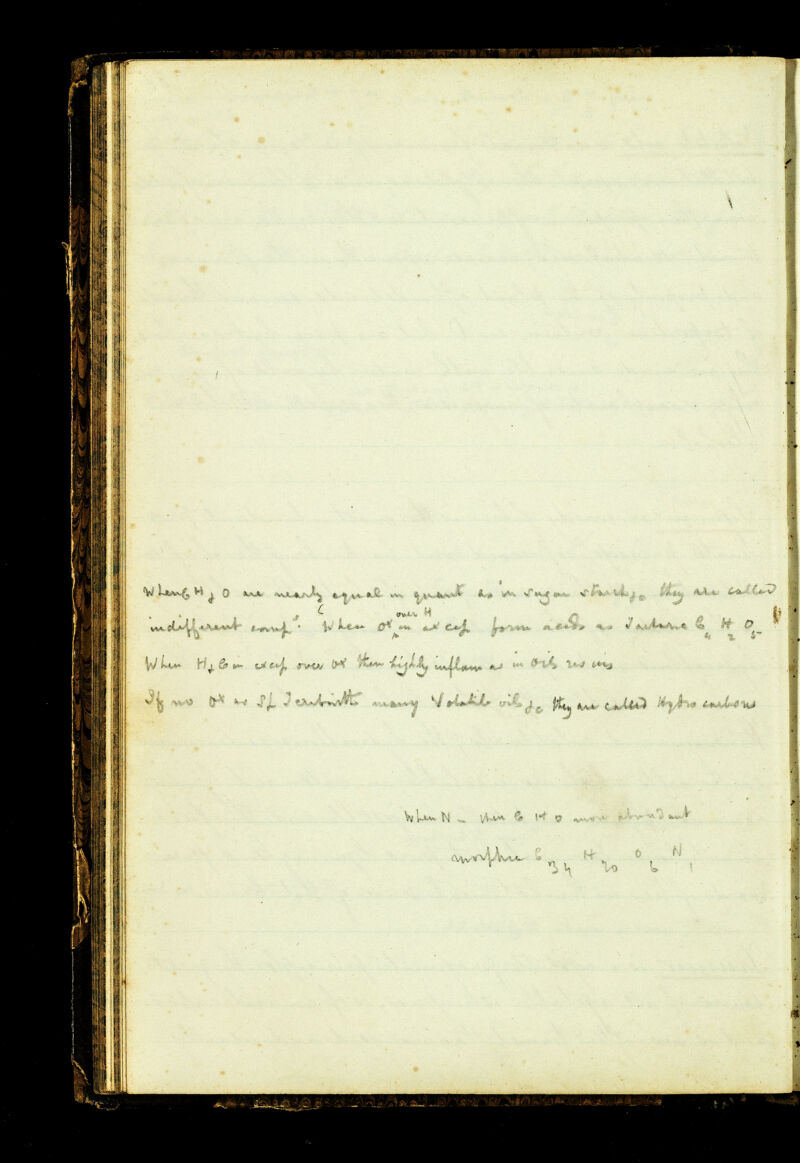 When C, H, O are nearly equal in quant as in sugar starch &c they are called
indifferent comps. When Ox in over H excess form acids as Tartaric C4 H2 O5
When H & C in excess over ox then highly inflam as in Oils resins
If no ox as Sp Terebinth many Volatile oils &c they are called Hydro carbons
When N – then C H O more abundant
morphia C34 H20 O6 N1